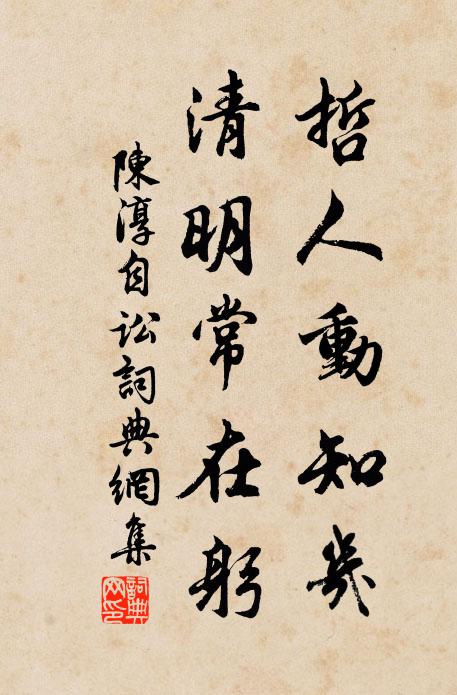 哲人動知幾
清明常在躬
陳淳自訟詞典網集
詞典網印